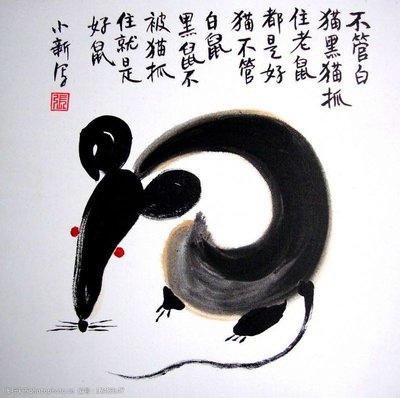 不管白
猫黑猫抓
住老鼠
都是好
猫不管
白鼠
黑鼠不
被猫抓
住就是
好鼠
小新写
張